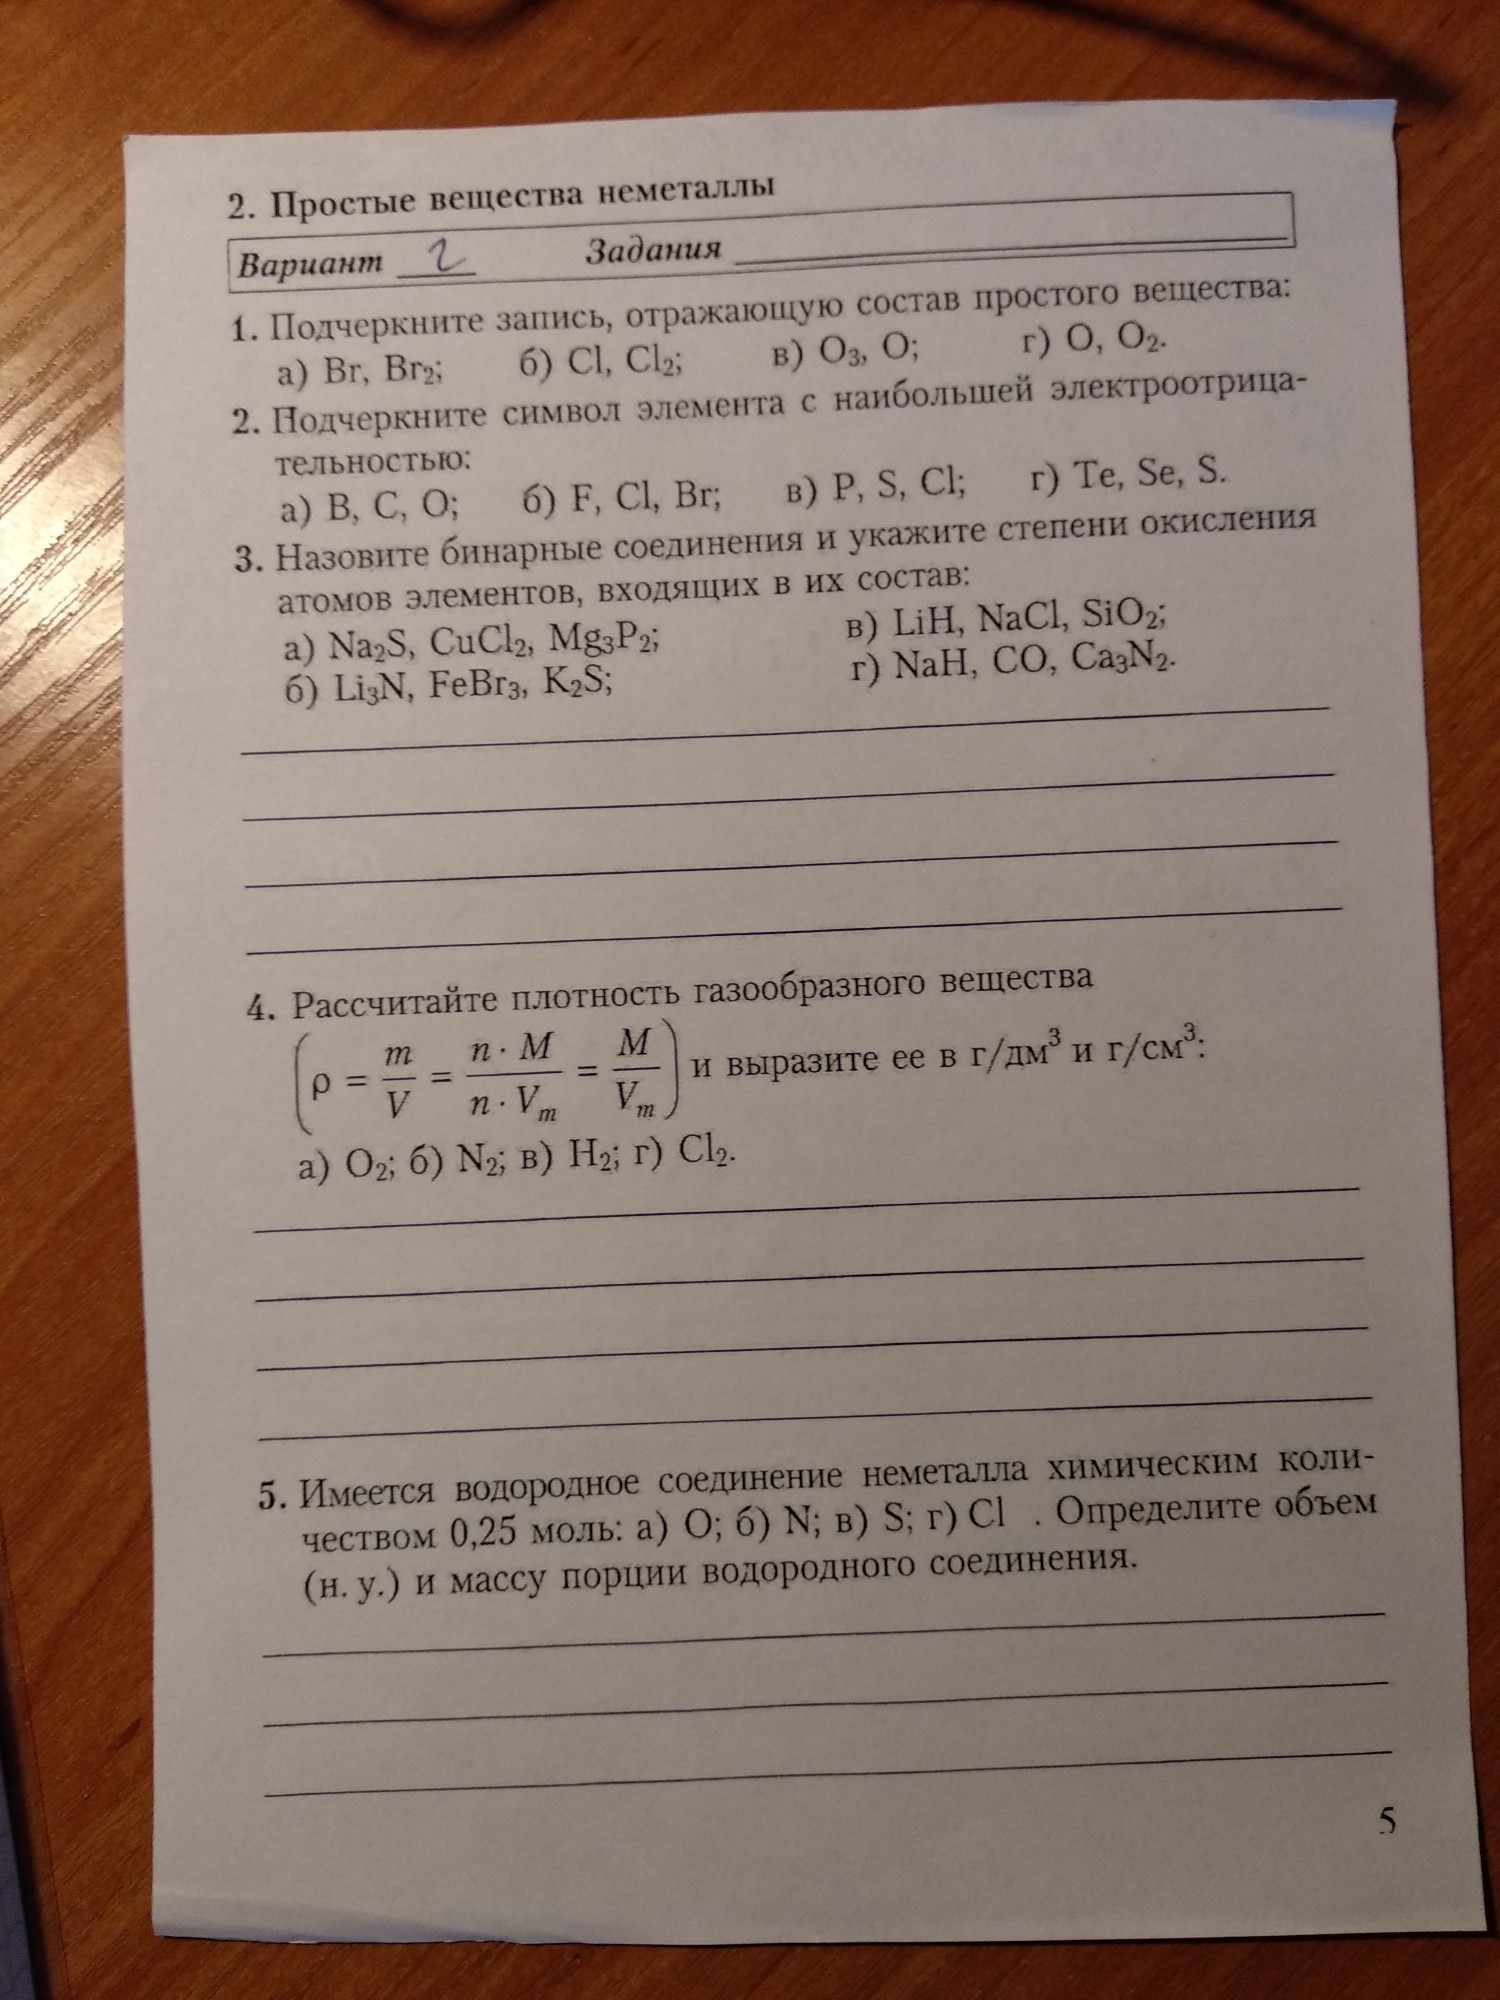 2. Простые вещества неметаллы
Вариант 2 Задания
1. Подчеркните запись, отражающую состав простого вещества:
а) Br, Br₂; б) Cl, Cl₂; в) O₃, O; г) O, O₂.
2. Подчеркните символ элемента с наибольшей электроотрица-
тельностью:
а) B, C, O; б) F, Cl, Br; в) P, S, Cl; г) Te, Se, S.
3. Назовите бинарные соединения и укажите степени окисления
атомов элементов, входящих в их состав:
а) Na₂S, CuCl₂, Mg₃P₂; в) LiH, NaCl, SiO₂;
б) Li₃N, FeBr₃, K₂S; г) NaH, CO, Ca₃N₂.
4. Рассчитайте плотность газообразного вещества
(ρ = m/V = n · M/n · Vₘ = M/Vₘ) и выразите ее в г/дм³ и г/см³:
а) O₂; б) N₂; в) H₂; г) Cl₂.
5. Имеется водородное соединение неметалла химическим коли-
чеством 0,25 моль: а) O; б) N; в) S; г) Cl . Определите объем
(н. у.) и массу порции водородного соединения.
5